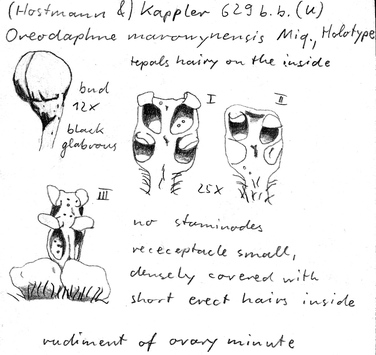 (Hostmann &) Kappler 629 b.b. (U)
Oreodaphne maronynensis Miq., Holotype
tepals hairy on the inside
bud
12x
black
glabrous
I
II
25x
III
no staminodes
receceptacle small,
densely covered with
short erect hairs inside
rudiment of ovary minute